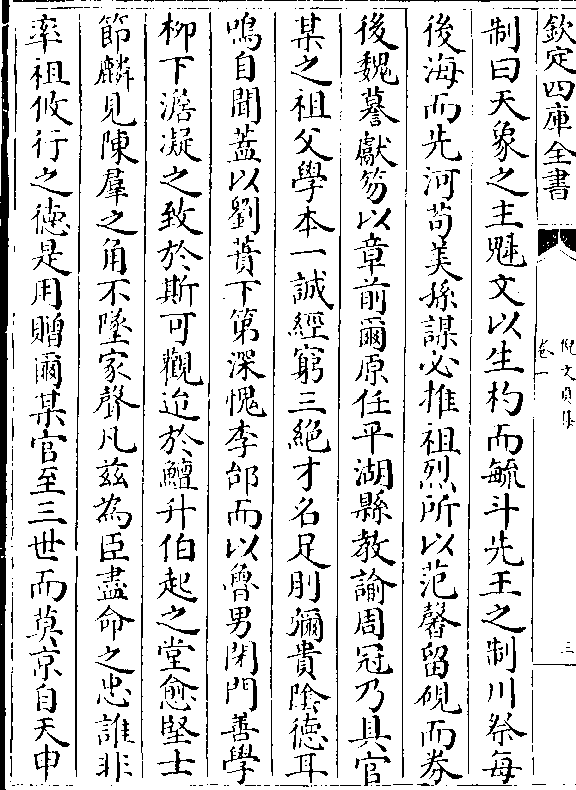 欽定四庫全書
倪文貞集
卷一
三
制曰天象之主魁文以生杓而毓斗先王之制川祭每
後海而先河苟美孫謀必推祖烈所以范馨留硯而券
後魏謩獻笏以章前爾原任平湖縣教諭周冠乃具官
某之祖父學本一誠經窮三絶才名足刖彌貴陰德耳
鳴自聞蓋以劉蕡下第深愧李郃而以魯男閉門善學
柳下澹凝之致於斯可觀迨於鱣升伯起之堂愈堅士
節麟見陳羣之角不墜家聲凡兹為臣盡命之忠誰非
率祖攸行之徳是用贈爾某官至三世而莫京自天申